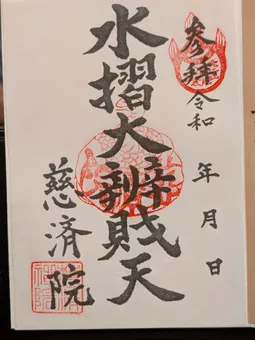 参拝
令和 年 月 日
水摺大辨賊天
慈済院